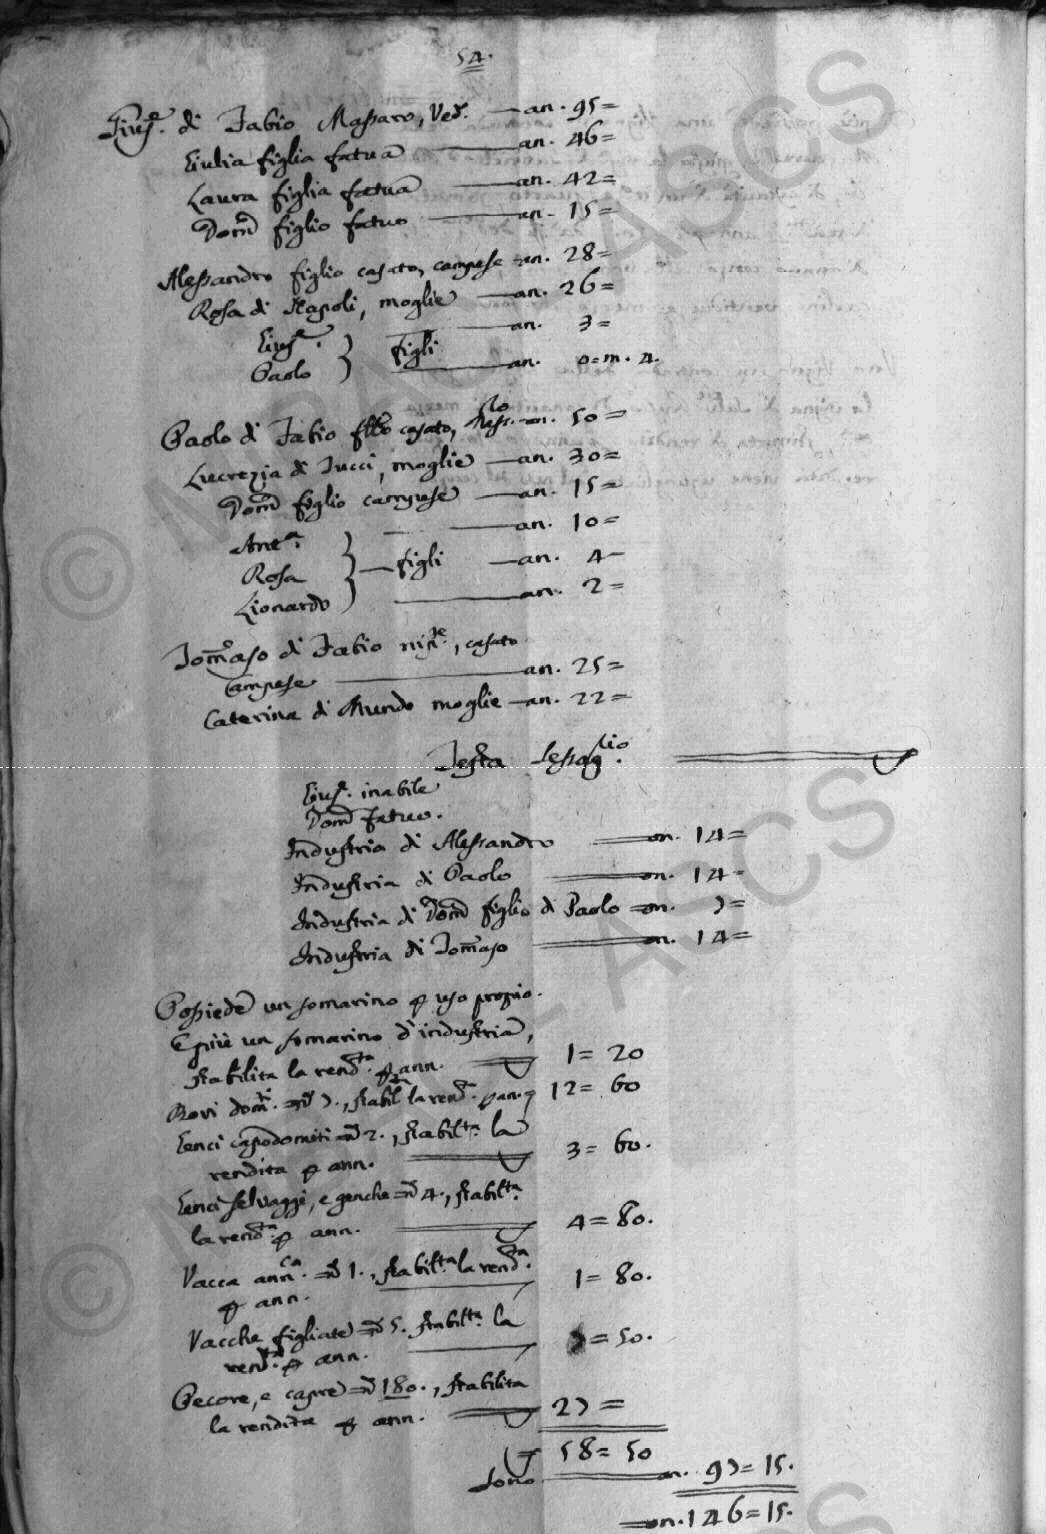 54.
Gius.e di Fabio Massaro, Ved.o — an. 95=
Giulia figlia fatua — an. 46=
Laura figlia fatua — an. 42=
Dom.co figlio fatuo — an. 15=
Alessandro figlio casato, campese an. 28=
Rosa di Napoli, moglie — an. 26=
Gius.e } figli — an. 3=
Paolo } — an. 0=m. 4.
Paolo di Fabio casato, an. 50=
Lucrezia di Tucci, moglie — an. 30=
Dom.co figlio campese — an. 15=
Ant.a } — an. 10=
Rosa } — figli — an. 4–
Lionardo } — an. 2=
Tomaso di Fabio casato
Campese — an. 25=
Caterina di Mundo moglie — an. 22=
Testa
Gius.e inabile
Dom.co fatuo.
Industria di Alessandro — on. 14=
Industria di Paolo — on. 14=
Industria di Dom.co figlio di Paolo — on. 7=
Industria di Tomaso — on. 14=
Possiede un somarino p uso proprio.
E più un somarino d'industria,
stabilita la rend.ta p ann. — 1=20
Bovi dom.ti n.o 7., stabil.ta la rend.ta p an. 12=60
Genci capodomiti n.o 2., stabil.ta la
rendita p ann. — 3=60.
Genci selvaggi, e genche n.o 4., stabil.ta
la rend.ta p ann. — 4=80.
Vacca ann.ca n.o 1., stabil.ta la rend.ta
p ann. — 1=80.
Vacche figliate n.o 5. stabil.ta la
rend.ta p ann. — 7=50.
Pecore, e capre n.o 180., stabilita
la rendita p ann. — 27=
58=50
Sono — on. 97=15.
on. 146=15.
© ASCS
© ASCS